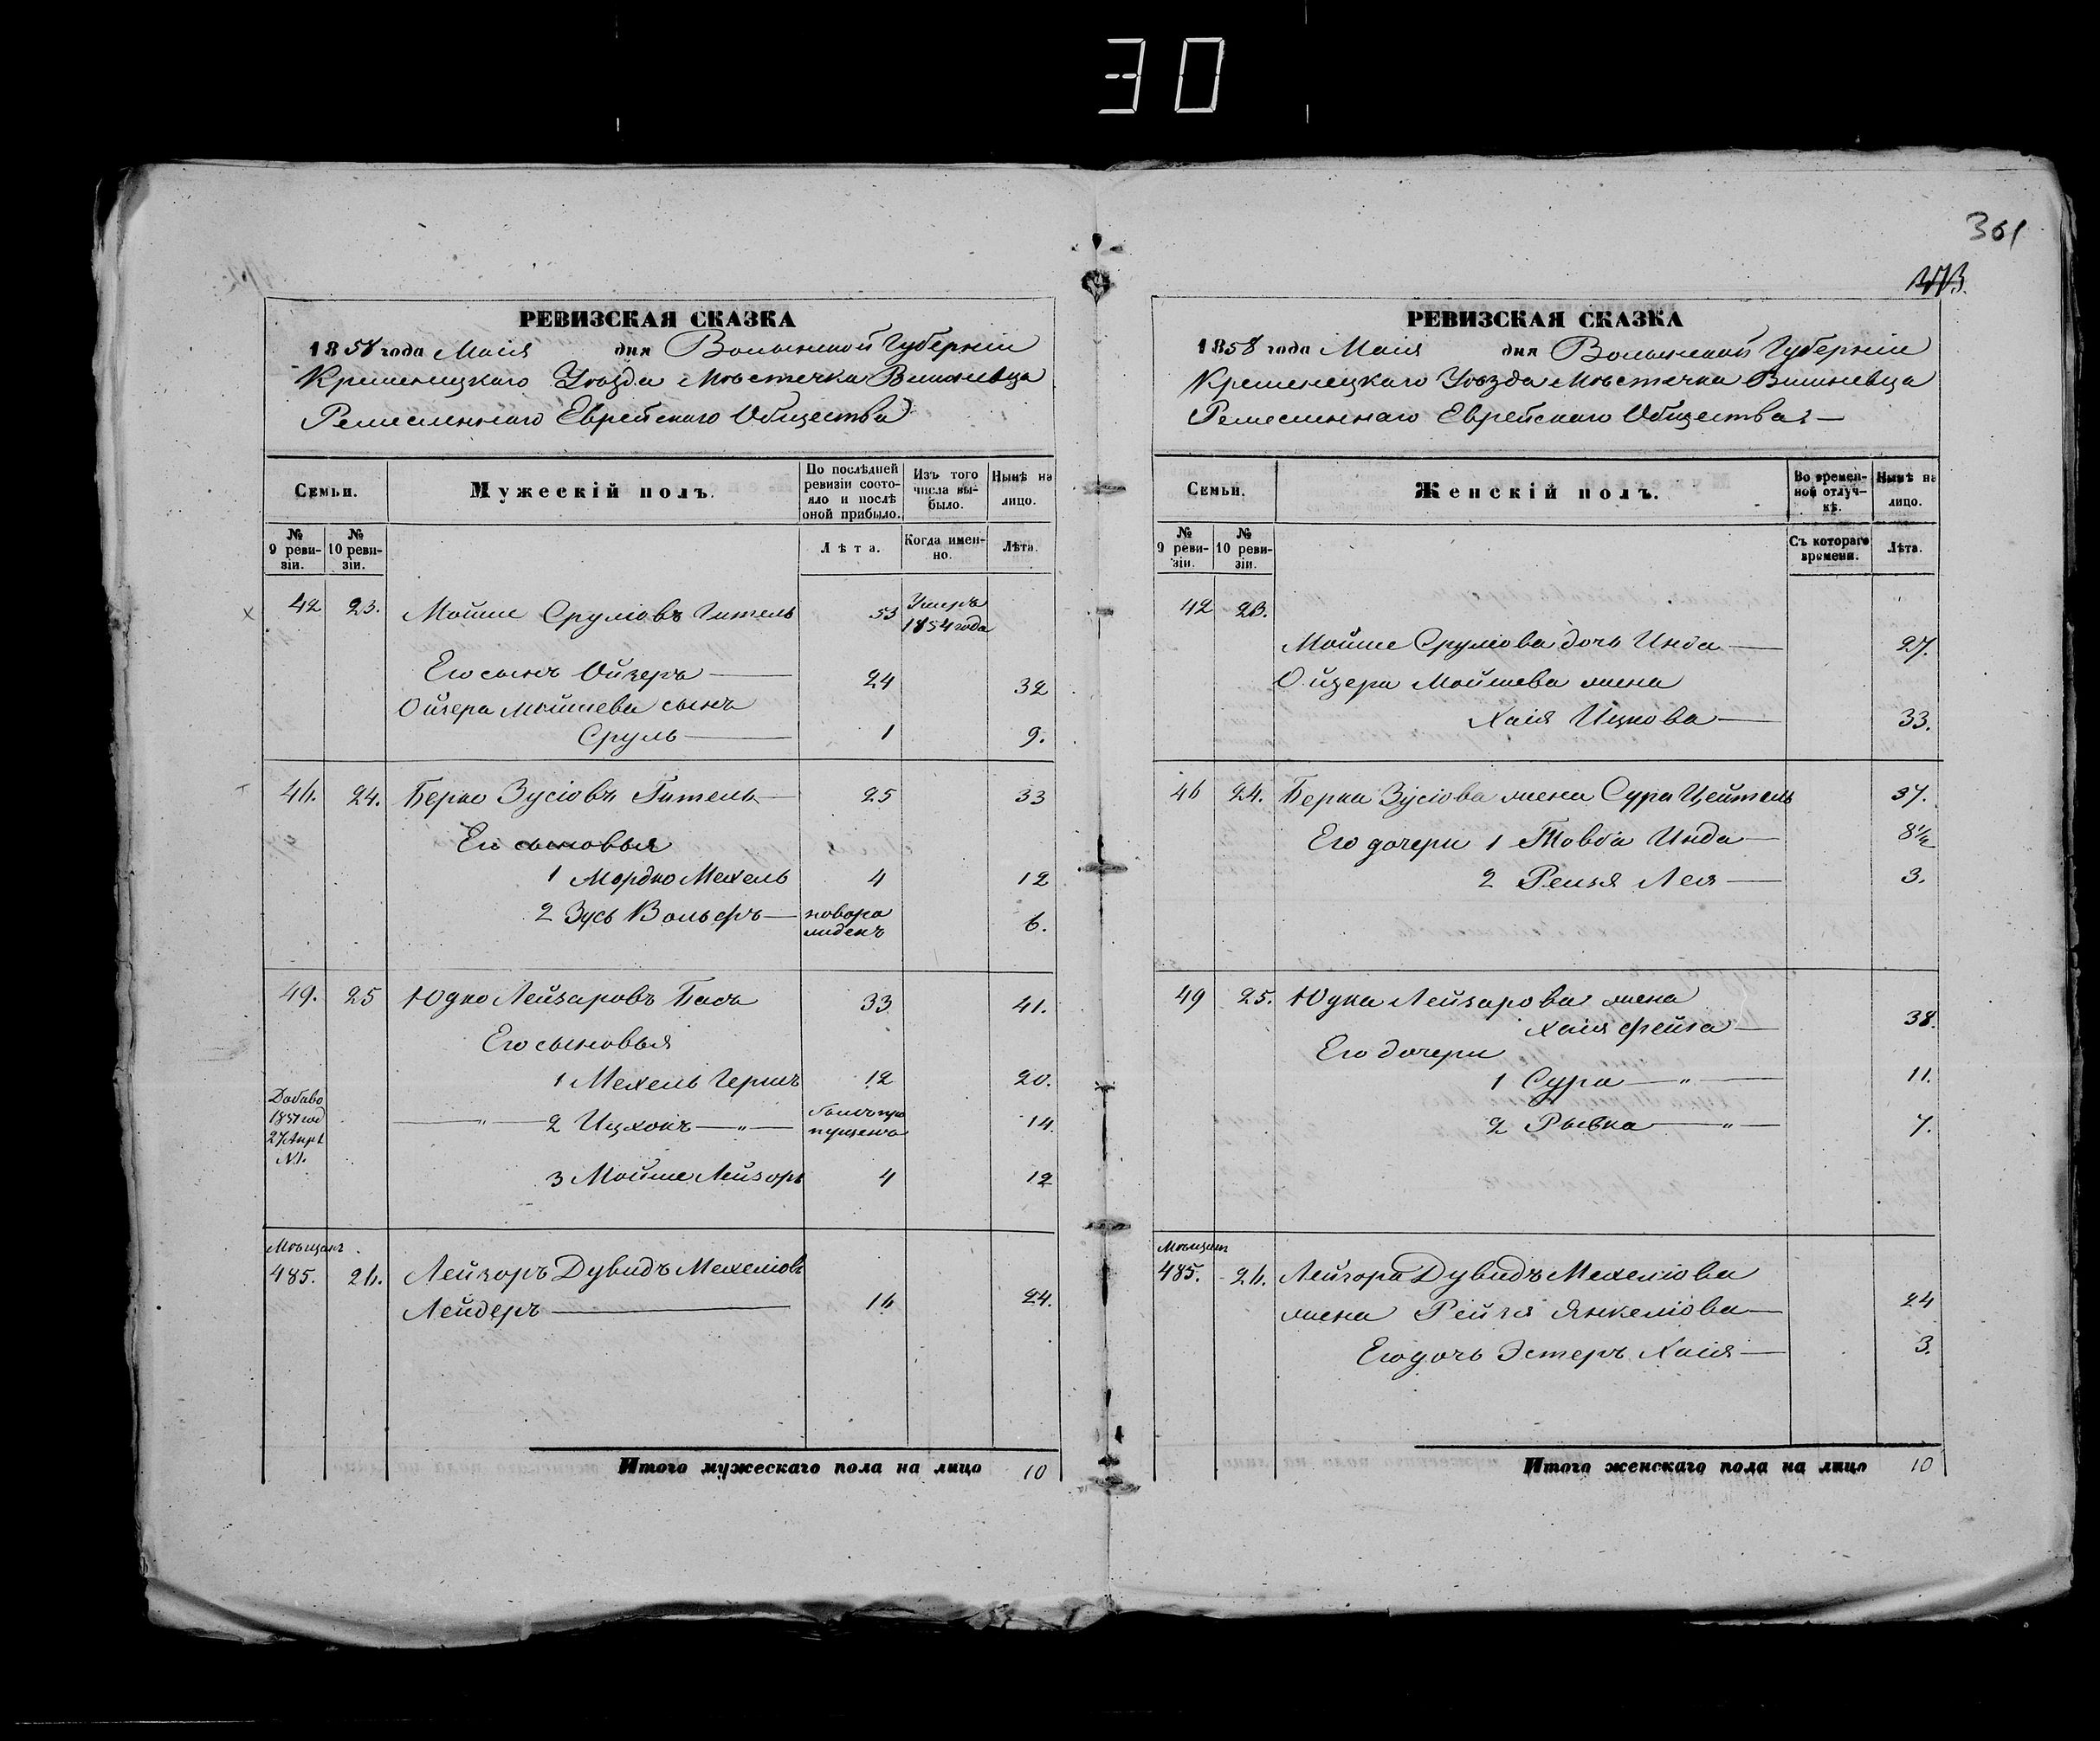 30
361
РЕВИЗСКАЯ СКАЗКА
1858 года Маія дня Волынской Губерніи
Кременецкаго Уѣзда Мѣстечка Вишневца
Ремесленнаго Еврейскаго Общества
Семьи.
Мужескій полъ.
По послѣдней ревизіи состояло и послѣ оной прибыло.
Изъ того числа выбыло.
Нынѣ на лицо.
№ 9 ревизіи.
№ 10 ревизіи.
Лѣта.
Когда именно.
Лѣта.
42 23. Мойше Сруліовъ Гитель 53 Умеръ 1854 года
Его сынъ Ойзеръ 24 32
Ойзера Мойшева сынъ
Сруль 1 9.
46. 24. Берко Зусіовъ Гитель 25 33
Его сыновья
1 Мордко Мехель 4 12
2 Зусь Вольфъ новорожденъ 6.
49. 25 Юдко Лейзаровъ Басъ 33 41.
Его сыновья
1 Мехель Гершъ 12 20.
Добаво 1851 год 27 Апрл №1. " 2 Ицхокъ " былъ пропущенъ 14.
3 Мойше Лейзоръ 4 12
Мѣщанъ
485. 26. Лейзоръ Дувидъ Мехеліовъ
Лейдеръ 16 24.
Итого мужескаго пола на лицо 10
РЕВИЗСКАЯ СКАЗКА
1858 года Маія дня Волынской Губерніи
Кременецкаго Уѣзда Мѣстечка Вишневца
Ремесленнаго Еврейскаго Общества
Семьи.
Женскій полъ.
Во временной отлучкѣ.
Нынѣ на лицо.
№ 9 ревизіи.
№ 10 ревизіи.
Съ котораго времени.
Лѣта.
42 23.
Мойше Сруліова дочь Инда 27.
Ойзера Мойшева жена
Хаія Ицкова 33.
46 24. Берка Зусіова жена Сура Цейтель 37.
Его дочери 1 Товба Инда 8½
2 Рейзя Лея 3.
49 25. Юдка Лейзарова жена
Хаія Фейга 38.
Его дочери
1 Сура " 11.
2 Рывка " 7.
Мѣщанъ
485. 26. Лейзора Дувидъ Мехеліова
жена Рейзя Янкеліова 24
Его дочь Эстеръ Хаія 3.
Итого женскаго пола на лицо 10